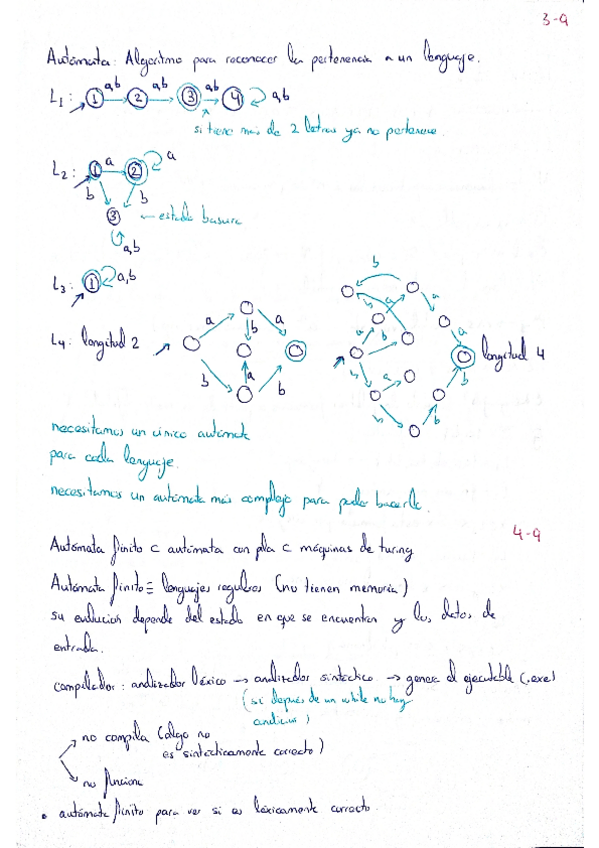 3-9
Autómata: Algoritmo para reconocer la pertenencia a un lenguaje.
L1: 1 a,b 2 a,b 3 a,b 4 a,b
si tiene más de 2 letras ya no pertenece.
L2: 1 a 2 a
b b
3 ← estado basura
a,b
L3: 1 a,b
L4: longitud 2 a b a b a b
b a a b a b a b b b longitud 4
necesitamos un único autómata
para cada lenguaje.
necesitamos un autómata más complejo para poder hacerlo.
4-9
Autómata finito ⊂ autómata con pila ⊂ máquinas de turing
Autómata finito ≡ lenguajes regulares (no tienen memoria)
su evolución depende del estado en que se encuentran y los datos de
entrada.
compilador: analizador léxico → analizador sintáctico → genera el ejecutable (.exe)
(si después de un while no hay
condición)
no compila (algo no
es sintácticamente correcto)
no funciona
• autómata finito para ver si es léxicamente correcto.